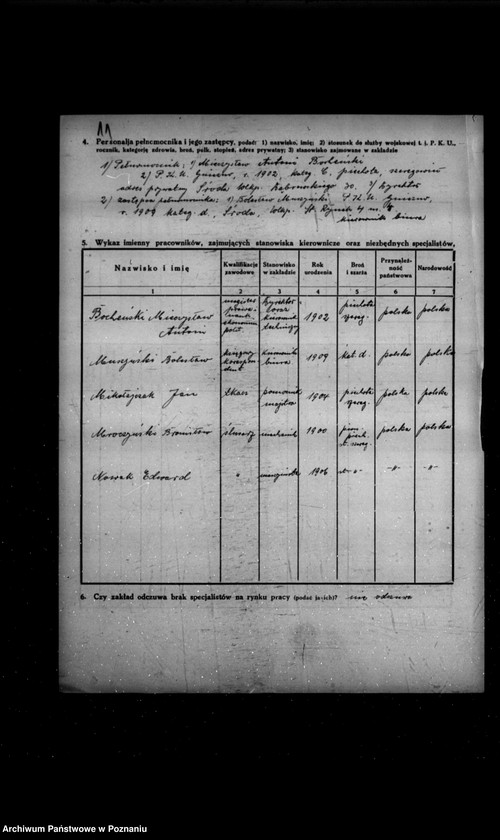 11
4. Personalja pełnomocnika i jego zastępcy, podać: 1) nazwisko, imię; 2) stosunek do służby wojskowej t. j. P. K. U.,
rocznik, kategorię zdrowia, broń, pułk, stopień, adres prywatny; 3) stanowisko zajmowane w zakładzie
1) Pełnomocnik: 1) Mieczysław Antoni Bocheński
2) P. K. U. Gniezno, r. 1902, kateg. C, piechota, szeregowiec
adres prywatny Środa Wlkp. Dąbrowskiego 30. 3/ dyrektor
2) zastępca pełnomocnika: 1) Bolesław Muszyński P. K. U. Gniezno,
r. 1909 kateg. d, Środa, Wlkp. St. Rynek
kierownik biura
5. Wykaz imienny pracowników, zajmujących stanowiska kierownicze oraz niezbędnych specjalistów,
Nazwisko i imię Kwalifikacje zawodowe Stanowisko w zakładzie Rok urodzenia Broń i szarża Przynależność państwowa Narodowość
1 2 3 4 5 6 7
Bocheński Mieczysław Antoni dyrektor oraz kierownik techniczny 1902 piechota szereg. polska polska
Muszyński Bolesław księgowy korespondent kierownik biura 1909 kat. d. polska polska
Mikołajczak Jan 1904 piechota szereg. polska polska
Mroczyński Bronisław ślusarz mechanik 1900 polska polska
Nowak Edward " maszynista 1906 -"- -"- -"-
6. Czy zakład odczuwa brak specjalistów na rynku pracy (podać jakich)? nie odczuwa
Archiwum Państwowe w Poznaniu